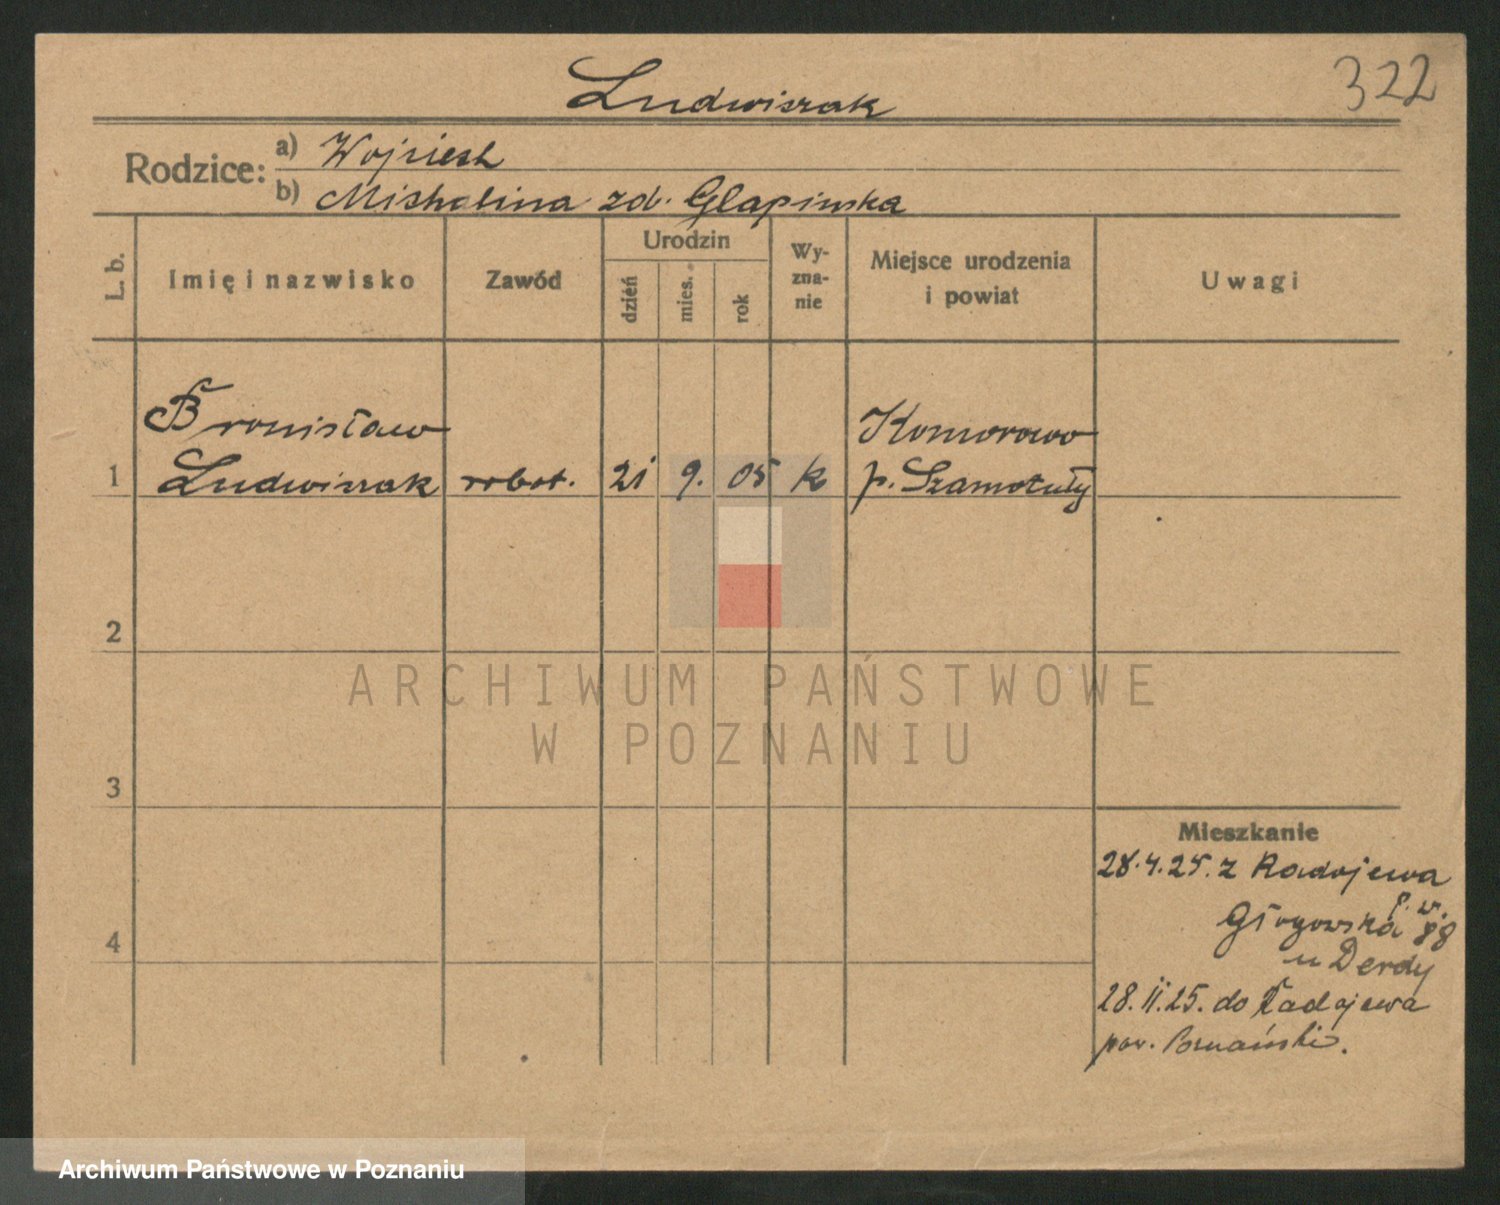 Ludwiszak
322
Rodzice:
a) Wojciech
b) Michalina zd. Glapińska
L. b.
Imię i nazwisko
Zawód
Urodzin
dzień
mies.
rok
Wy-
zna-
nie
Miejsce urodzenia
i powiat
Uwagi
Bronisław
Komorowo
1 Ludwiszak robot. 21 9. 05 k p. Szamotuły
2
ARCHIWUM PAŃSTWOWE
W POZNANIU
3
Mieszkanie
28.4.25. z Radojewa
p. w.
Głogowska 88
4
u Derdy
28.11.25. do Radojewa
pow. Poznański.
Archiwum Państwowe w Poznaniu